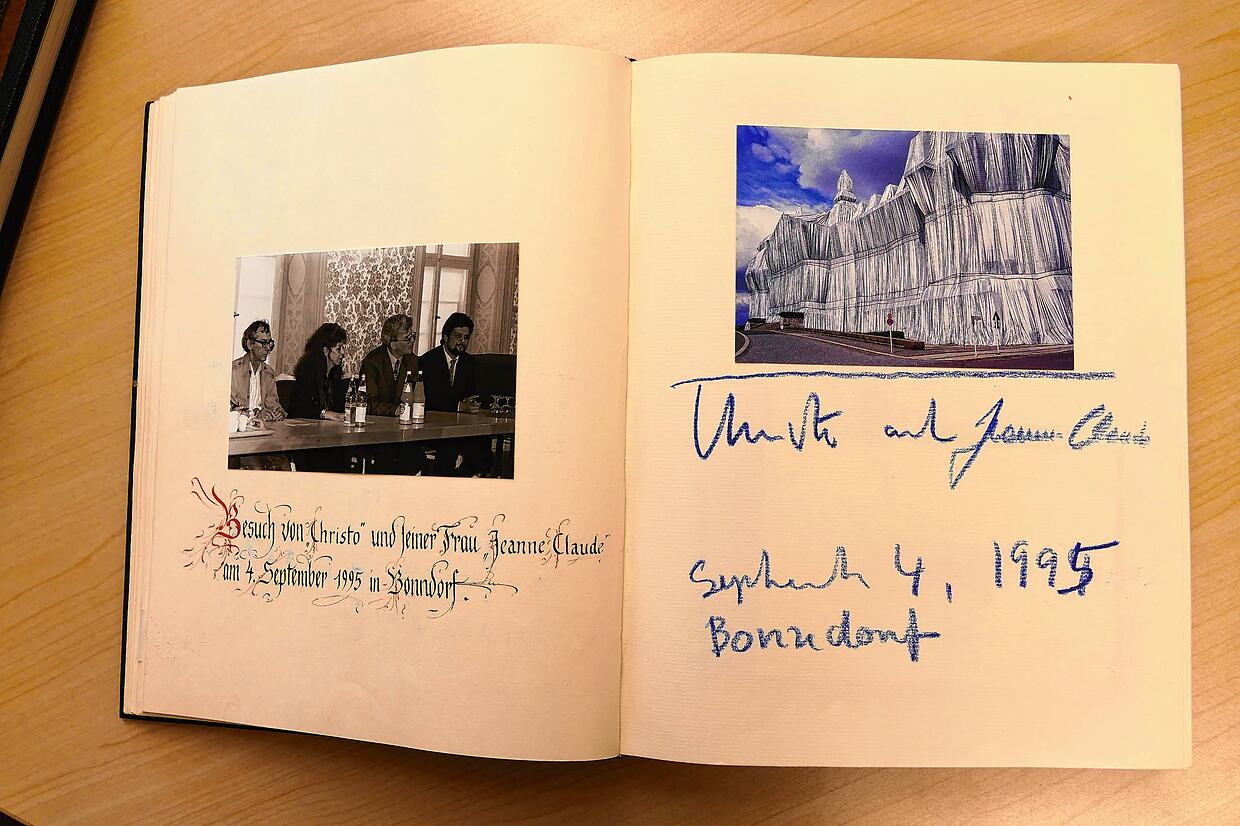 Besuch von „Christo" und seiner Frau „Jeanne Claude"
am 4. September 1995 in Bonndorf.
Christo and Jeanne-Claude
September 4, 1995
Bonndorf